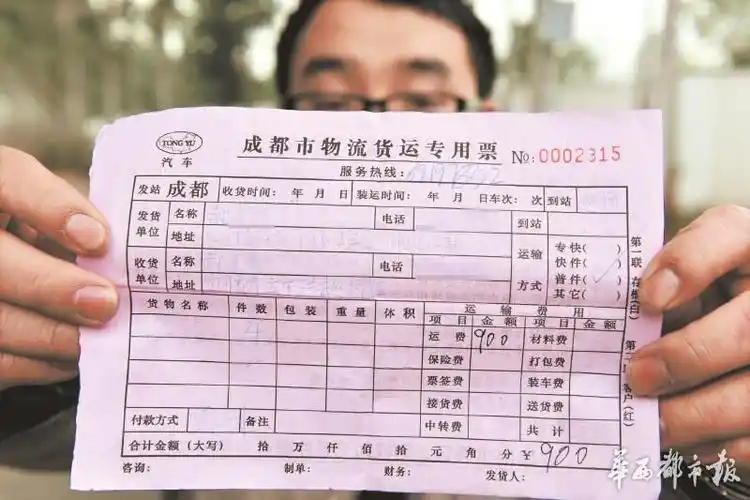 TONG YU
汽车
成都市物流货运专用票 No:0002315
服务热线:
发站 成都 收货时间: 年 月 日 装运时间: 年 月 日 车次: 次 到站
发货单位 名称 电话 到站
地址
运输方式 专快( ) 快件( ) 普件( ✓ ) 其它( )
收货单位 名称 电话
地址
货物名称 件数 包装 重量 体积 运输费用
项目 金额 项目 金额
4 运费 900 材料费
保险费 打包费
票签费 装车费
接货费 送货费
付款方式 备注 中转费 共计
合计金额(大写) 拾 万 仟 佰 拾 元 角 分 ¥ 900
咨询: 制单: 财务: 发货人:
第一联 存根(白)
第二联 客户(红)
华西都市报